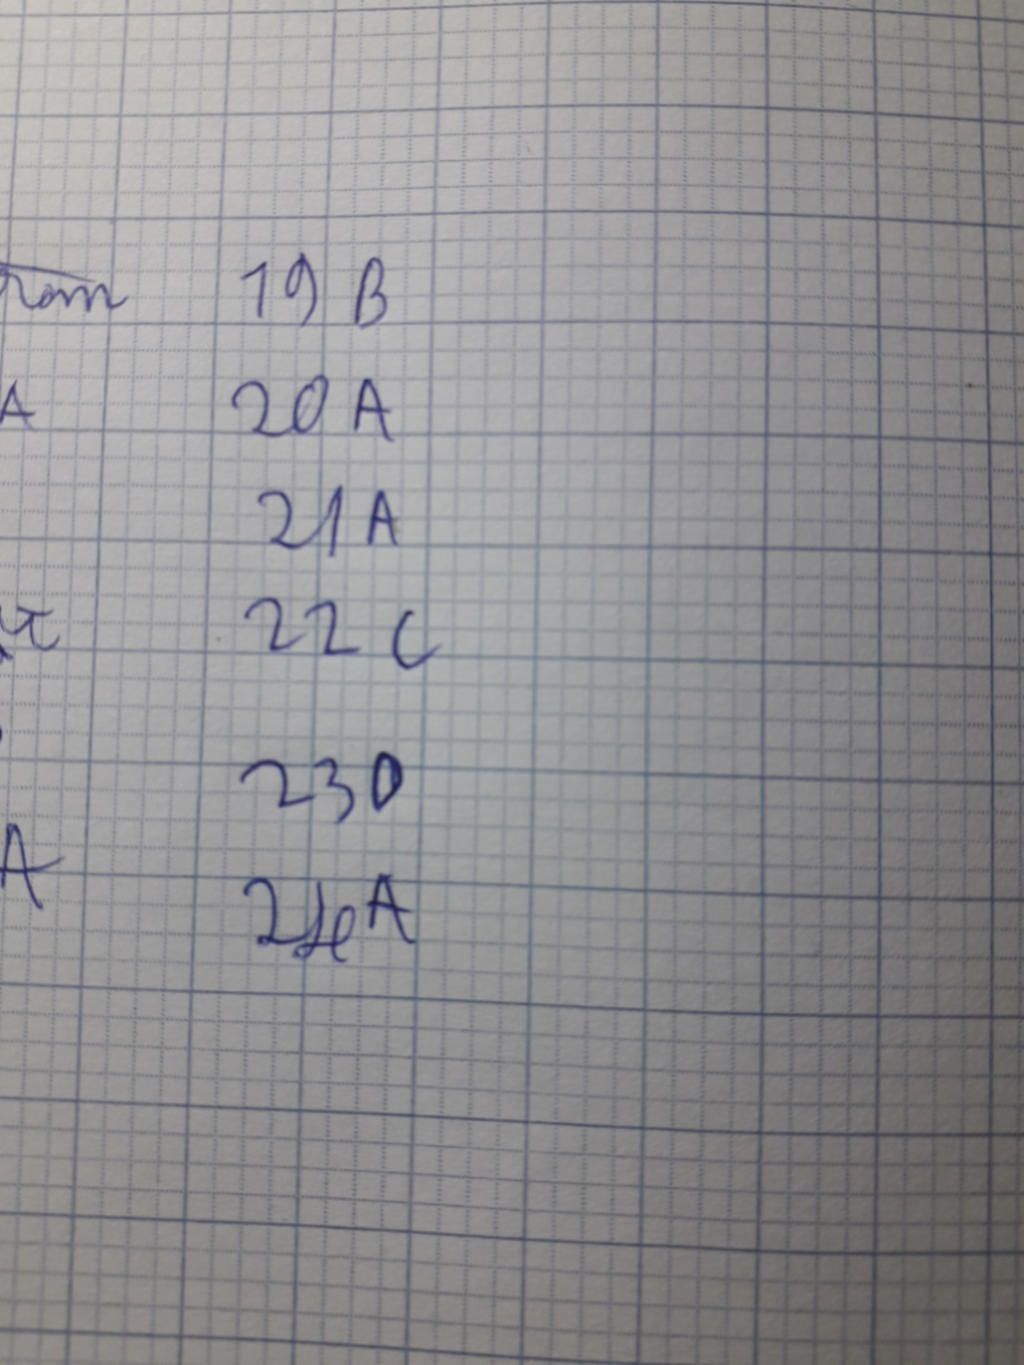 from 19 B
A 20 A
21 A
22 C
23 D
A 24 A